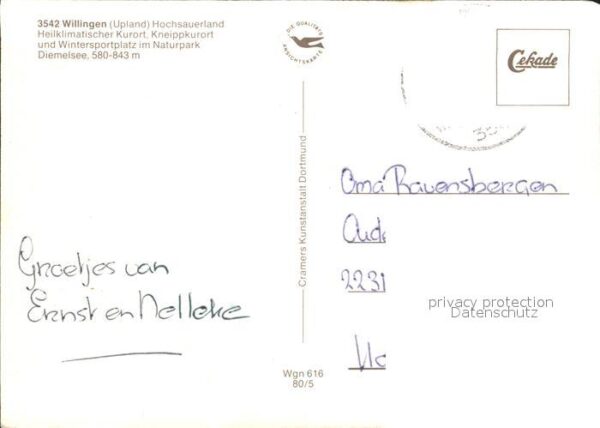 3542 Willingen (Upland) Hochsauerland
Heilklimatischer Kurort, Kneippkurort
und Wintersportplatz im Naturpark
Diemelsee, 580-843 m
DIE QUALITÄTS
ANSICHTSKARTE
Cekade
Cramers Kunstanstalt Dortmund
Oma Ravensbergen
Oude
2231
privacy protection
Datenschutz
Groetjes van
Ernst en Nelleke
Wgn 616
80/5